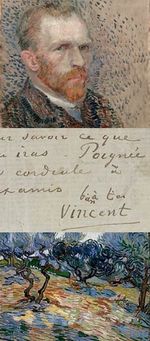 ur savoir ce que
u iras Poignée
cordiale à
t amis
b à toi
Vincent